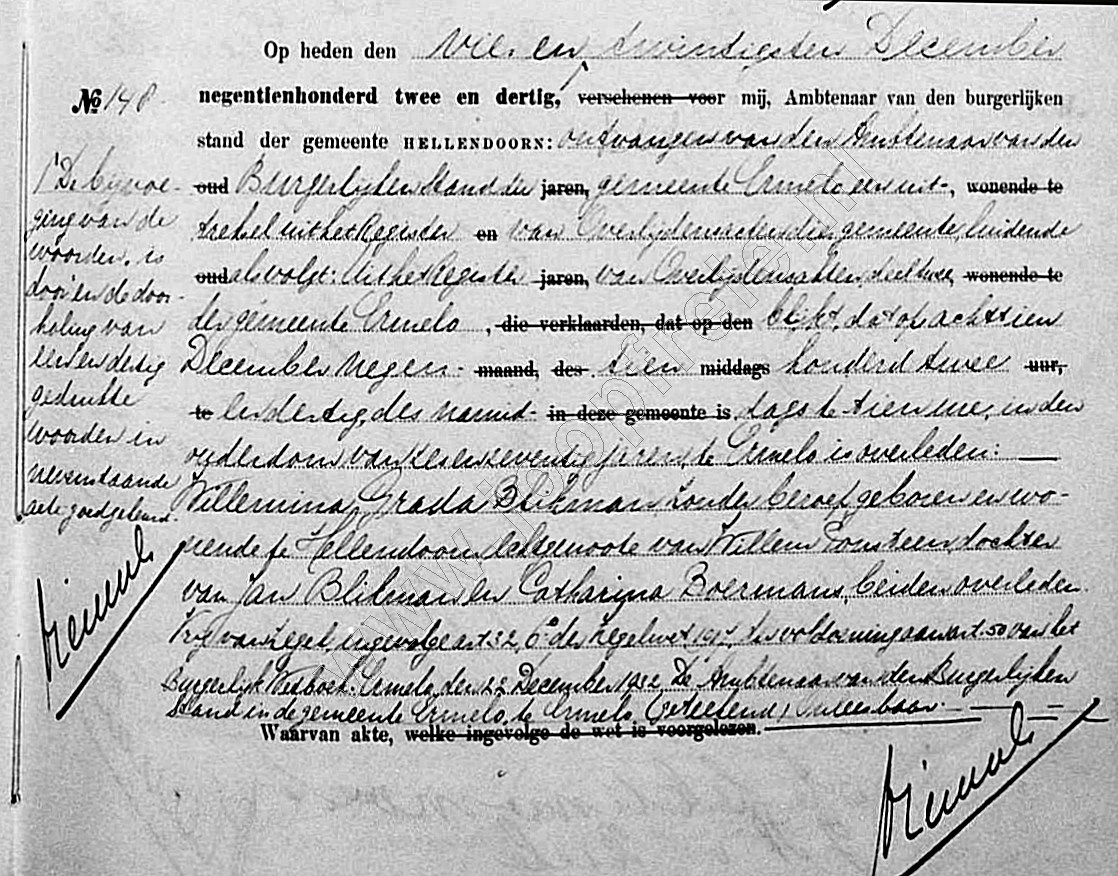 Op heden den vier en twintigsten December
No 148.
negentienhonderd twee en dertig, verschenen voor mij, Ambtenaar van den burgerlijken
stand der gemeente HELLENDOORN: ontvangen van den Ambtenaar van den
oud Burgerlijken Stand der jaren, gemeente Ermelo een uit-, wonende te
treksel uit het Register en van Overlijdensacten dier gemeente, luidende
oud als volgt: Uit het Register jaren, van Overlijdensakten, deel twee, wonende te
der gemeente Ermelo, die verklaarden, dat op den blijkt, dat op achttien
December negen- maand, des tien middags honderd twee uur,
te en dertig, des namid- in deze gemeente is dags te tien ure, in den
ouderdom van zes en zeventig jaren, te Ermelo is overleden:
Willemina Grada Blikman, zonder beroep, geboren en wo-
nende te Hellendoorn, echtgenoote van Willem Ponsteen, dochter
van Jan Blikman en Catharina Boermans, beiden overleden.
Vrij van zegel, ingevolge art 32, 6° der zegelwet 1917, ter voldoening aan art. 50 van het
Burgerlijk Wetboek. Ermelo, den 22 December 1932. De Ambtenaar van den Burgerlijken
Stand in de gemeente Ermelo, te Ermelo, (geteekend)
Waarvan akte, welke ingevolge de wet is voorgelezen.
De bijvoe-
ging van de
woorden, is
door en de door-
haling van
een en dertig
gedrukte
woorden in
nevenstaande
acte goedgekeurd.